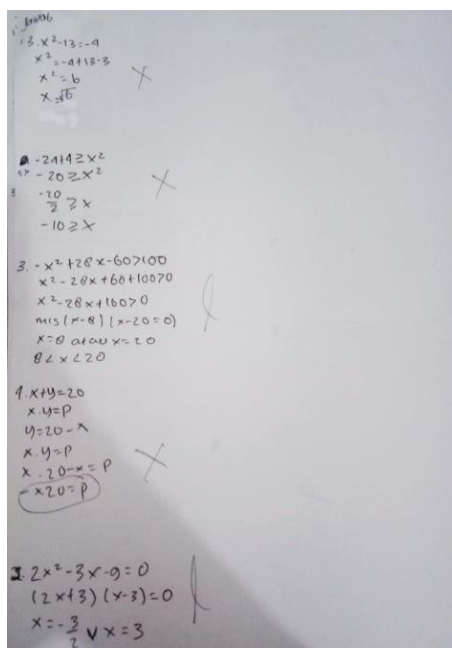 Jawab
3. x² - 13 = -4
x² = -4 + 13 - 3
x² = 6
x = √6
-24 + 4 ≥ x²
-20 ≥ x²
-20/2 ≥ x
-10 ≥ x
3. -x² + 28x - 60 > 100
x² - 28x + 60 + 100 > 0
x² - 28x + 160 > 0
mis (x-8) (x-20=0)
x = 8 atau x = 20
8 < x < 20
4. x + y = 20
x . y = P
y = 20 - x
x . y = P
x . 20 - x = P
- x20 = P
2x² - 3x - 9 = 0
(2x+3) (x-3) = 0
x = -3/2 v x = 3